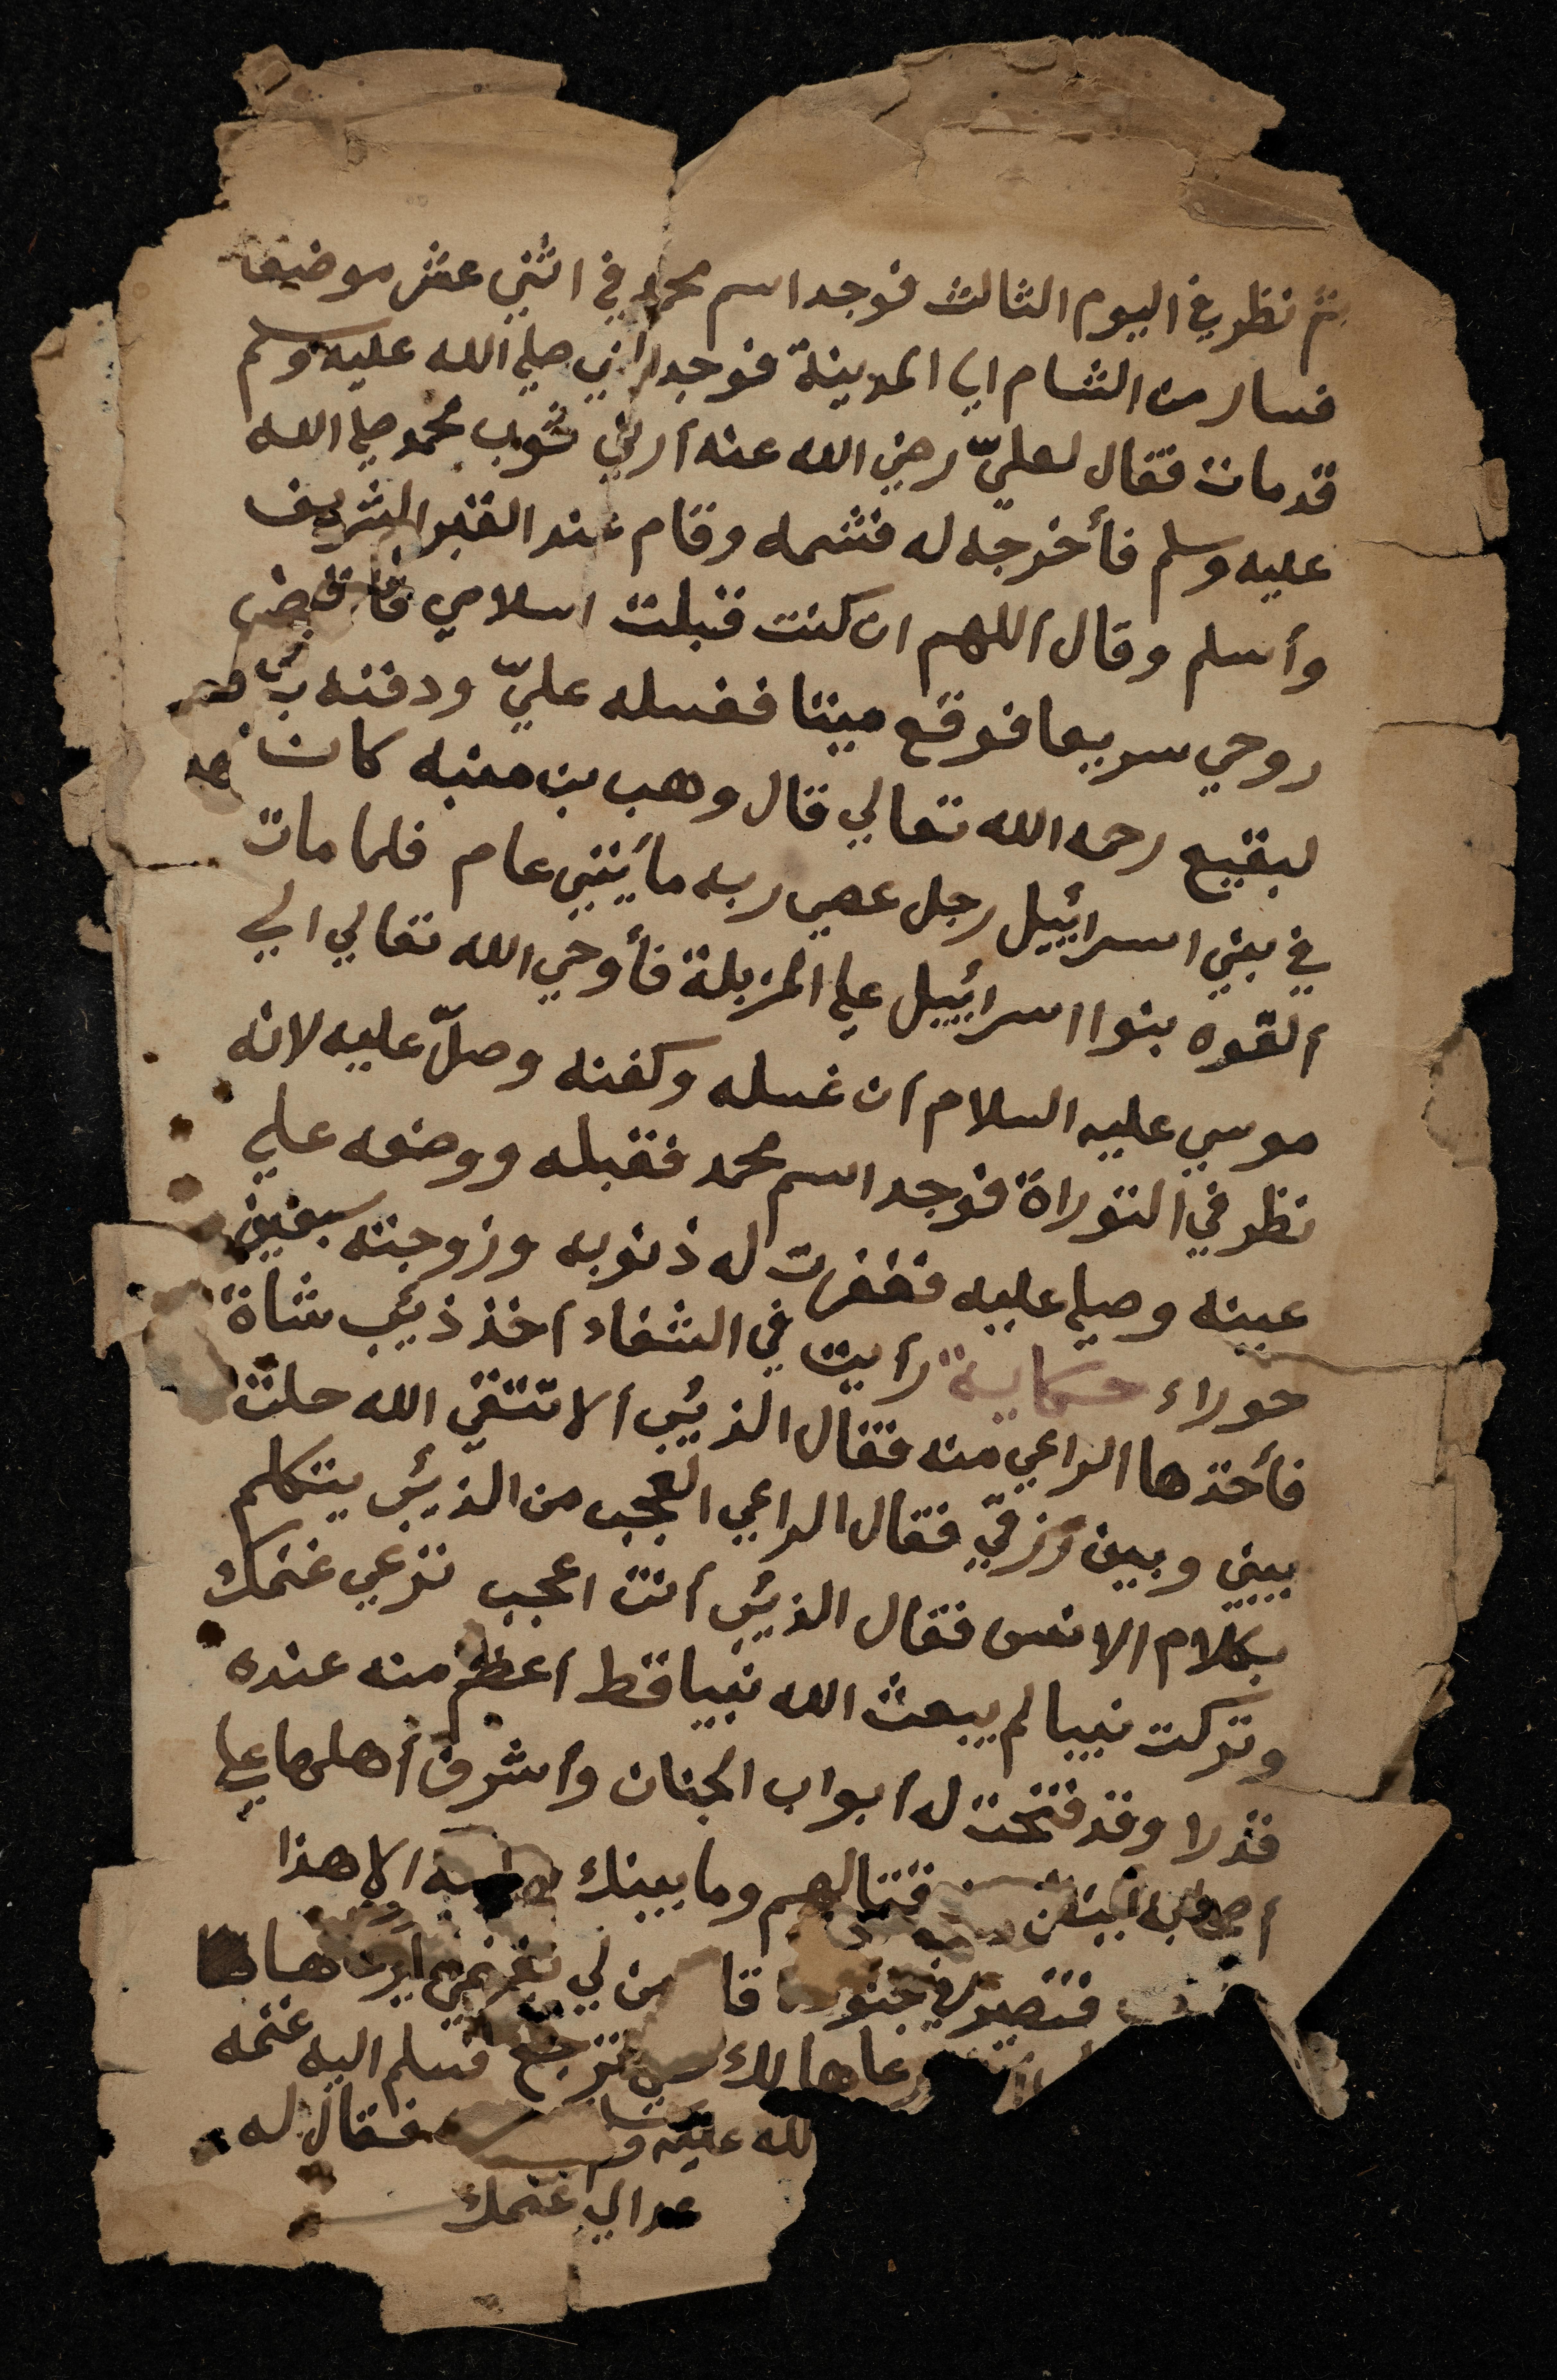 ثم نظر في اليوم الثالث فوجد اسم محمد في اثني عشر موضعا
فسار من الشام الي المدينة فوجد النبي صلي الله عليه وسلم
قد مات فقال لعليّ رضي الله عنه أرني ثوب محمد صلي الله
عليه وسلم فأخرجه له فشمه وقام عند القبر الشريف
وأسلم وقال اللهم ان كنت قبلت اسلامي فاقبض
روحي سريعا فوقع ميتا فغسله عليّ ودفنه
لبقيع رحمه الله تعالي قال وهب بن منبه كان
في بني اسرائيل رجل عصي ربه مأيتني عام فلما مات
ألقوه بنوا اسرائيل علي المزبلة فأوحي الله تعالي الي
موسي عليه السلام أن غسله وكفنه وصلّ عليه لانه
نظر في التوراة فوجد اسم محمد فقبله ووضعه علي
عينه وصلي عليه فغفرت له ذنوبه وزوجته سبعين
حوراء حكاية رأيت في الشفاء أخذ ذئب شاة
فأخذها الراعي منه فقال الذئب ألا تتقي الله حلت
بيني وبين رزقي فقال الراعي العجب من الذئب يتكلم
بكلام الانس فقال الذئب أنت اعجب ترعي غنمك
وتركت نبيا لم يبعث الله نبيا قط أعظم منه عنده
قدرا وقد فتحت له أبواب الجنان وأشرف أهلها علي
أصحابه قتالهم وما بينك الا هذا
فتصير في جنود من لي بغنمي
عاها لك ترجع فسلم اليه غنمه
لله عليه وسلم فقال له
الي غنمك